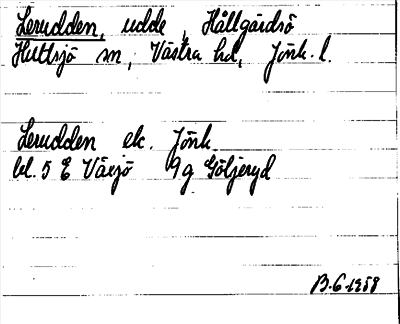 Lerudden, udde, Hållgårdsö
Hultsjö sn, Västra hd, Jönk. l.
Lerudden ek. Jönk.
bl. 5 E Växjö 9 g Göljeryd
B-6-1958